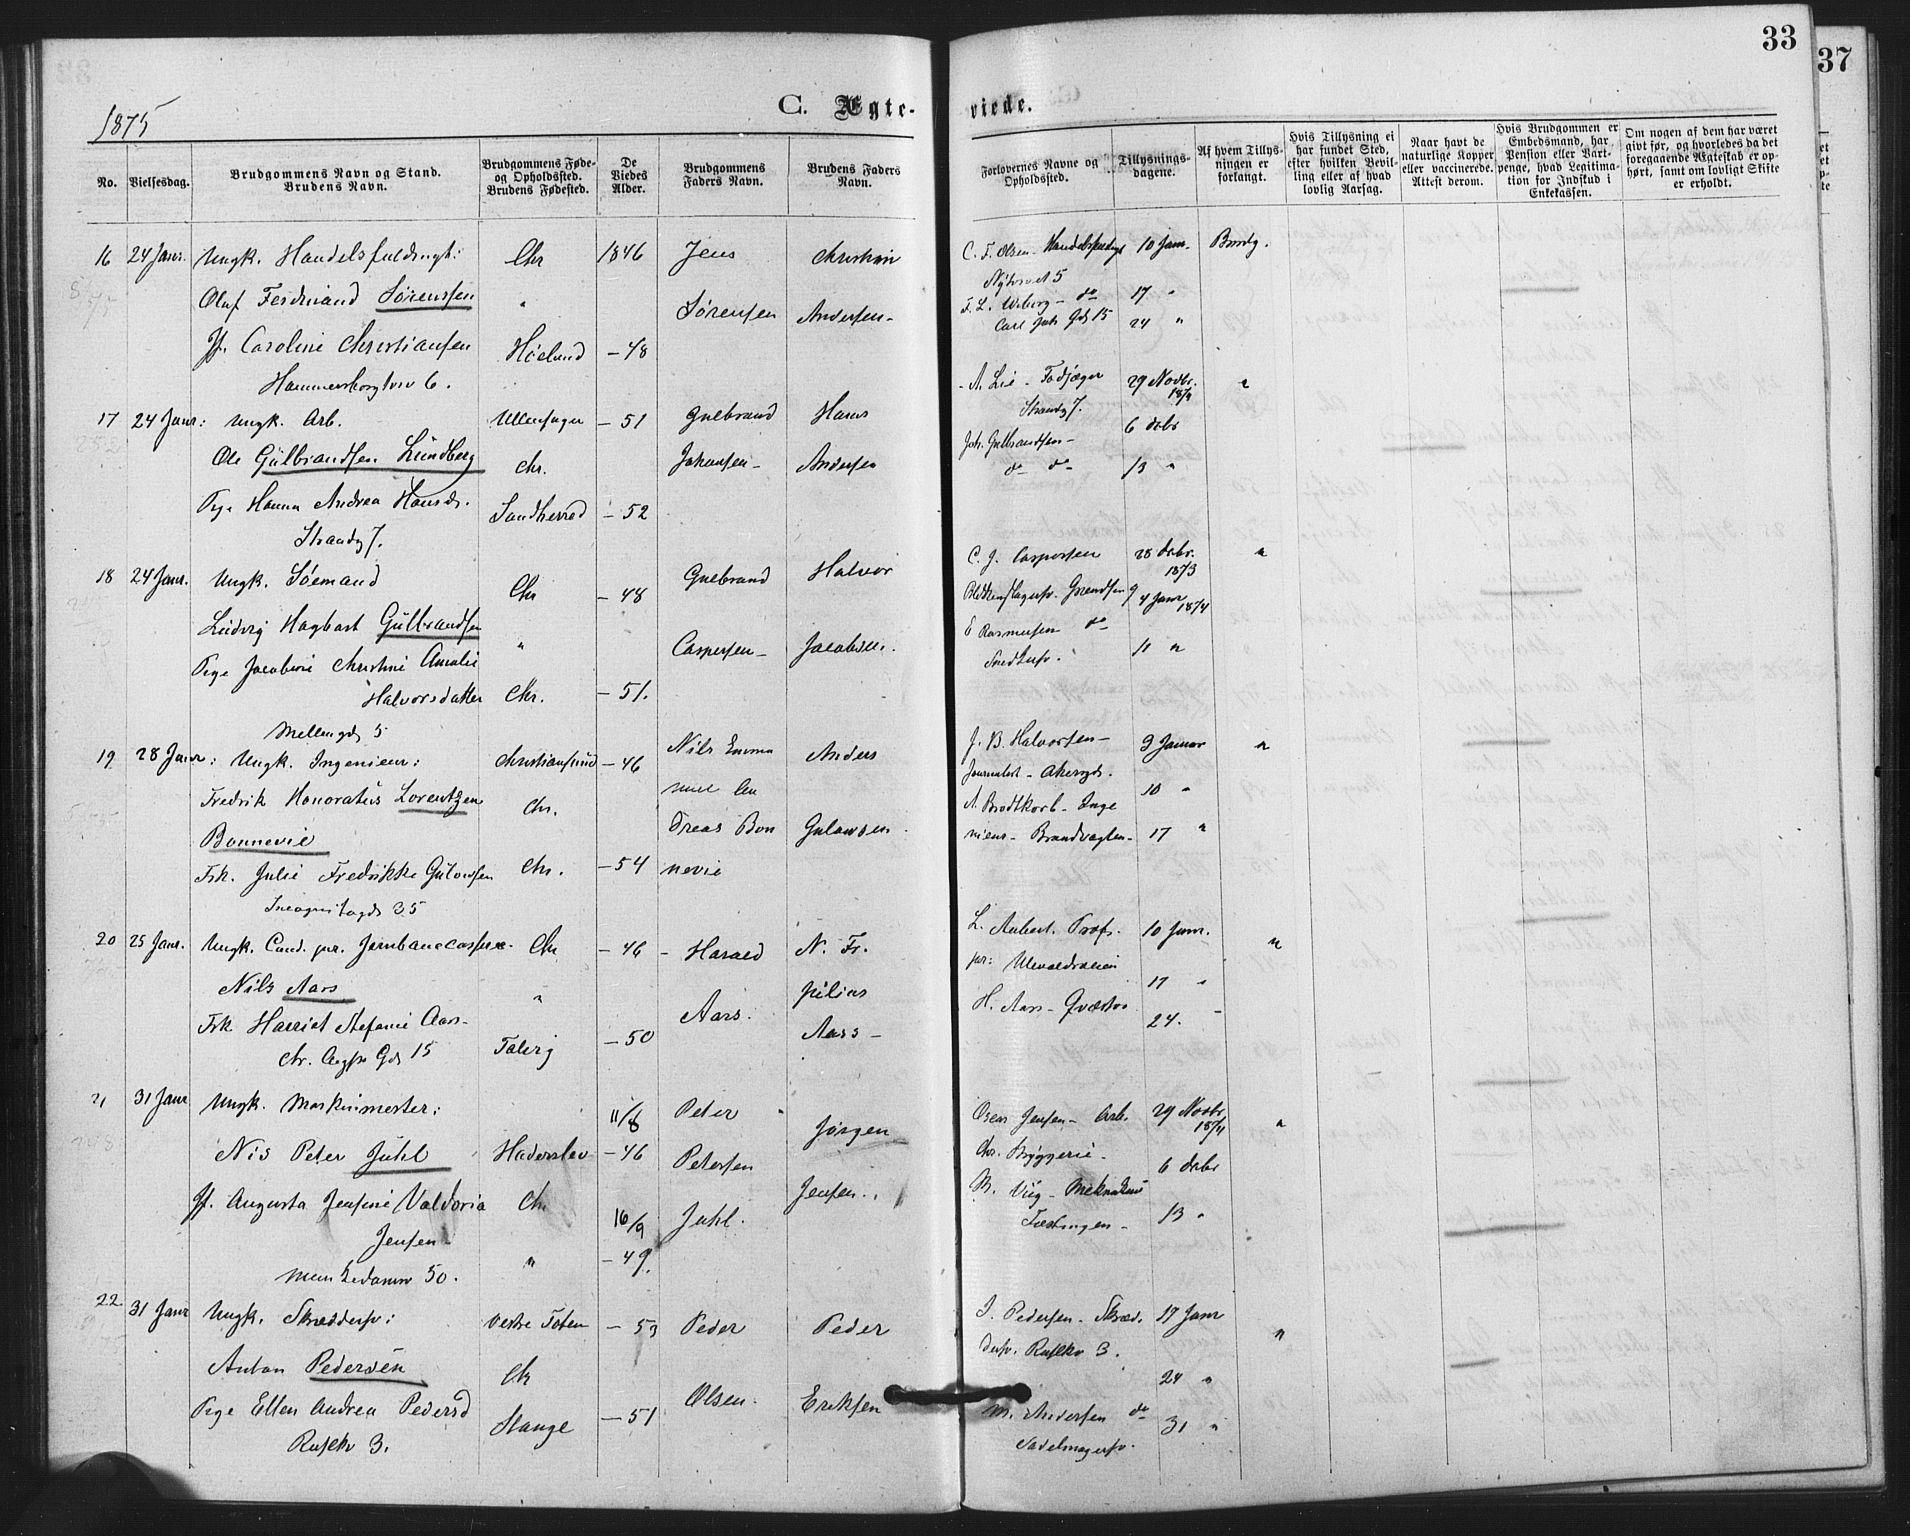 33
37
1875
C. Ægte-
viede.
No.
Vielsesdag.
Brudgommens Navn og Stand.
Brudens Navn.
Brudgommens Føde-
og Opholdssted.
Brudens Fødested.
De
Viedes
Alder.
Brudgommens
Faders Navn.
Brudens Faders
Navn.
Forlovernes Navne og
Opholdssted.
Tillysnings-
dagene.
Af hvem Tillys-
ningen er
forlangt.
Hvis Tillysning ei
har fundet Sted,
efter hvilken Bevil-
ling eller af hvad
lovlig Aarsag.
Naar havt de
naturlige Kopper
eller vaccinerede.
Attest derom.
Hvis Brudgommen er
Embedsmand, har
Pension eller Vart-
penge, hvad Legitima-
tion for Indskud i
Enkekassen.
Om nogen af dem har været
givt før, og hvorledes da det
foregaaende Ægteskab er op-
hørt, samt om lovligt Skifte
er erholdt.
16 24 Janr. Ungk. Handelsfuldmgt: Chr 1846 Jens Christian
Oluf Ferdinand Sørenssen " Sørensen Andersen-
Jf. Caroline Christiansen Høland - 48
Hammersborgtvr 6.
C. F. Olsen - Handelsfuldmgt 10 Janr. Brudg.
5
F. L. Wiborg - do 17 "
Carl Joh Gd 15 24 "
17 24 Janr: Ungk. Arb. Ullensager - 51 Gulbrand Hans
Ole Gulbrandsen Lundberg Chr. Johansen- Andersen
Pige Hanna Andrea Hansd. Sandherred - 52
Strandg 7.
A. Lie - 29 Novbr. "
Strandg 7. 187
Joh. Gulbrandsen - 6 dcbr
do do 13 "
18 24 Janr. Ungk. Sømand Chr - 48 Gulbrand Halvor
Ludvig Hagbart Gulbrandsen " Caspersen- Jacobsen.
Pige Jacobine Christine Amalie
Halvorsdatter Chr. - 51.
Mellemgd 5
C. J. Caspersen 28 dcbr. "
1873
Blikkenslagersv. Grændsen 9 4 Janr 1874
E Rasmussen do
Snedksv. 11 "
19 28 Janr: Ungk. Ingenieur: Christiansund - 46 Nils Emma Anders
Fredrik Honoratus Lorentzen Chr. nuel An
Bonnevie dreas Bon Gulowsen
Frk. Julie Fredrikke Gulowsen Chr. - 54 nevie
Incognitogd 35
J. B. Halvorsen - 3 Januar "
Journalist - Akersgd. 10 "
A. Brodtkorb - Inge
nieur - Brandvagten - 17 "
20 25 Janr. Ungk. Cand. jur. Jernbanecasserer. Chr - 46 - Harald N. Fr.
Nils Aars " Aars. Julius
Frk Harriet Stefanie Aars- Aars -
Chr. Augs Gd 15 Faberg - 50
L. Aubert. Prof. 10 Janr. "
jur: Ulevoldsveien 17 "
H. Aars - Qvæstor 24. -
21 31 Janr Ungk. Maskinmester: 11/8 Peter Jørgen
Nis Peter Juhl Haderslev - 46 Petersen Jensen.
Jf. Augusta Jensine Valdoria Chr 16/9 Juhl.
Jensen- " - 49.
50.
Jensen - Arb. 29 Novbr. "
Chr. Bryggerie. 6 dcbr
M. Viig - 13 "
Fæstningen -
22 31 Janr Ungk. Skræddersv: Vestre Toten - 53 Peder Peder
Anton Pedersen Chr Olsen. Eriksen
Pige Ellen Andrea Pedersd Stange - 51
Ruselkv 3.
J. Pedersen - Skræd. 17 Janr "
dersv. Ruselkv 3. 24 "
M. Andersen do 31 "
Sadelmagersv.